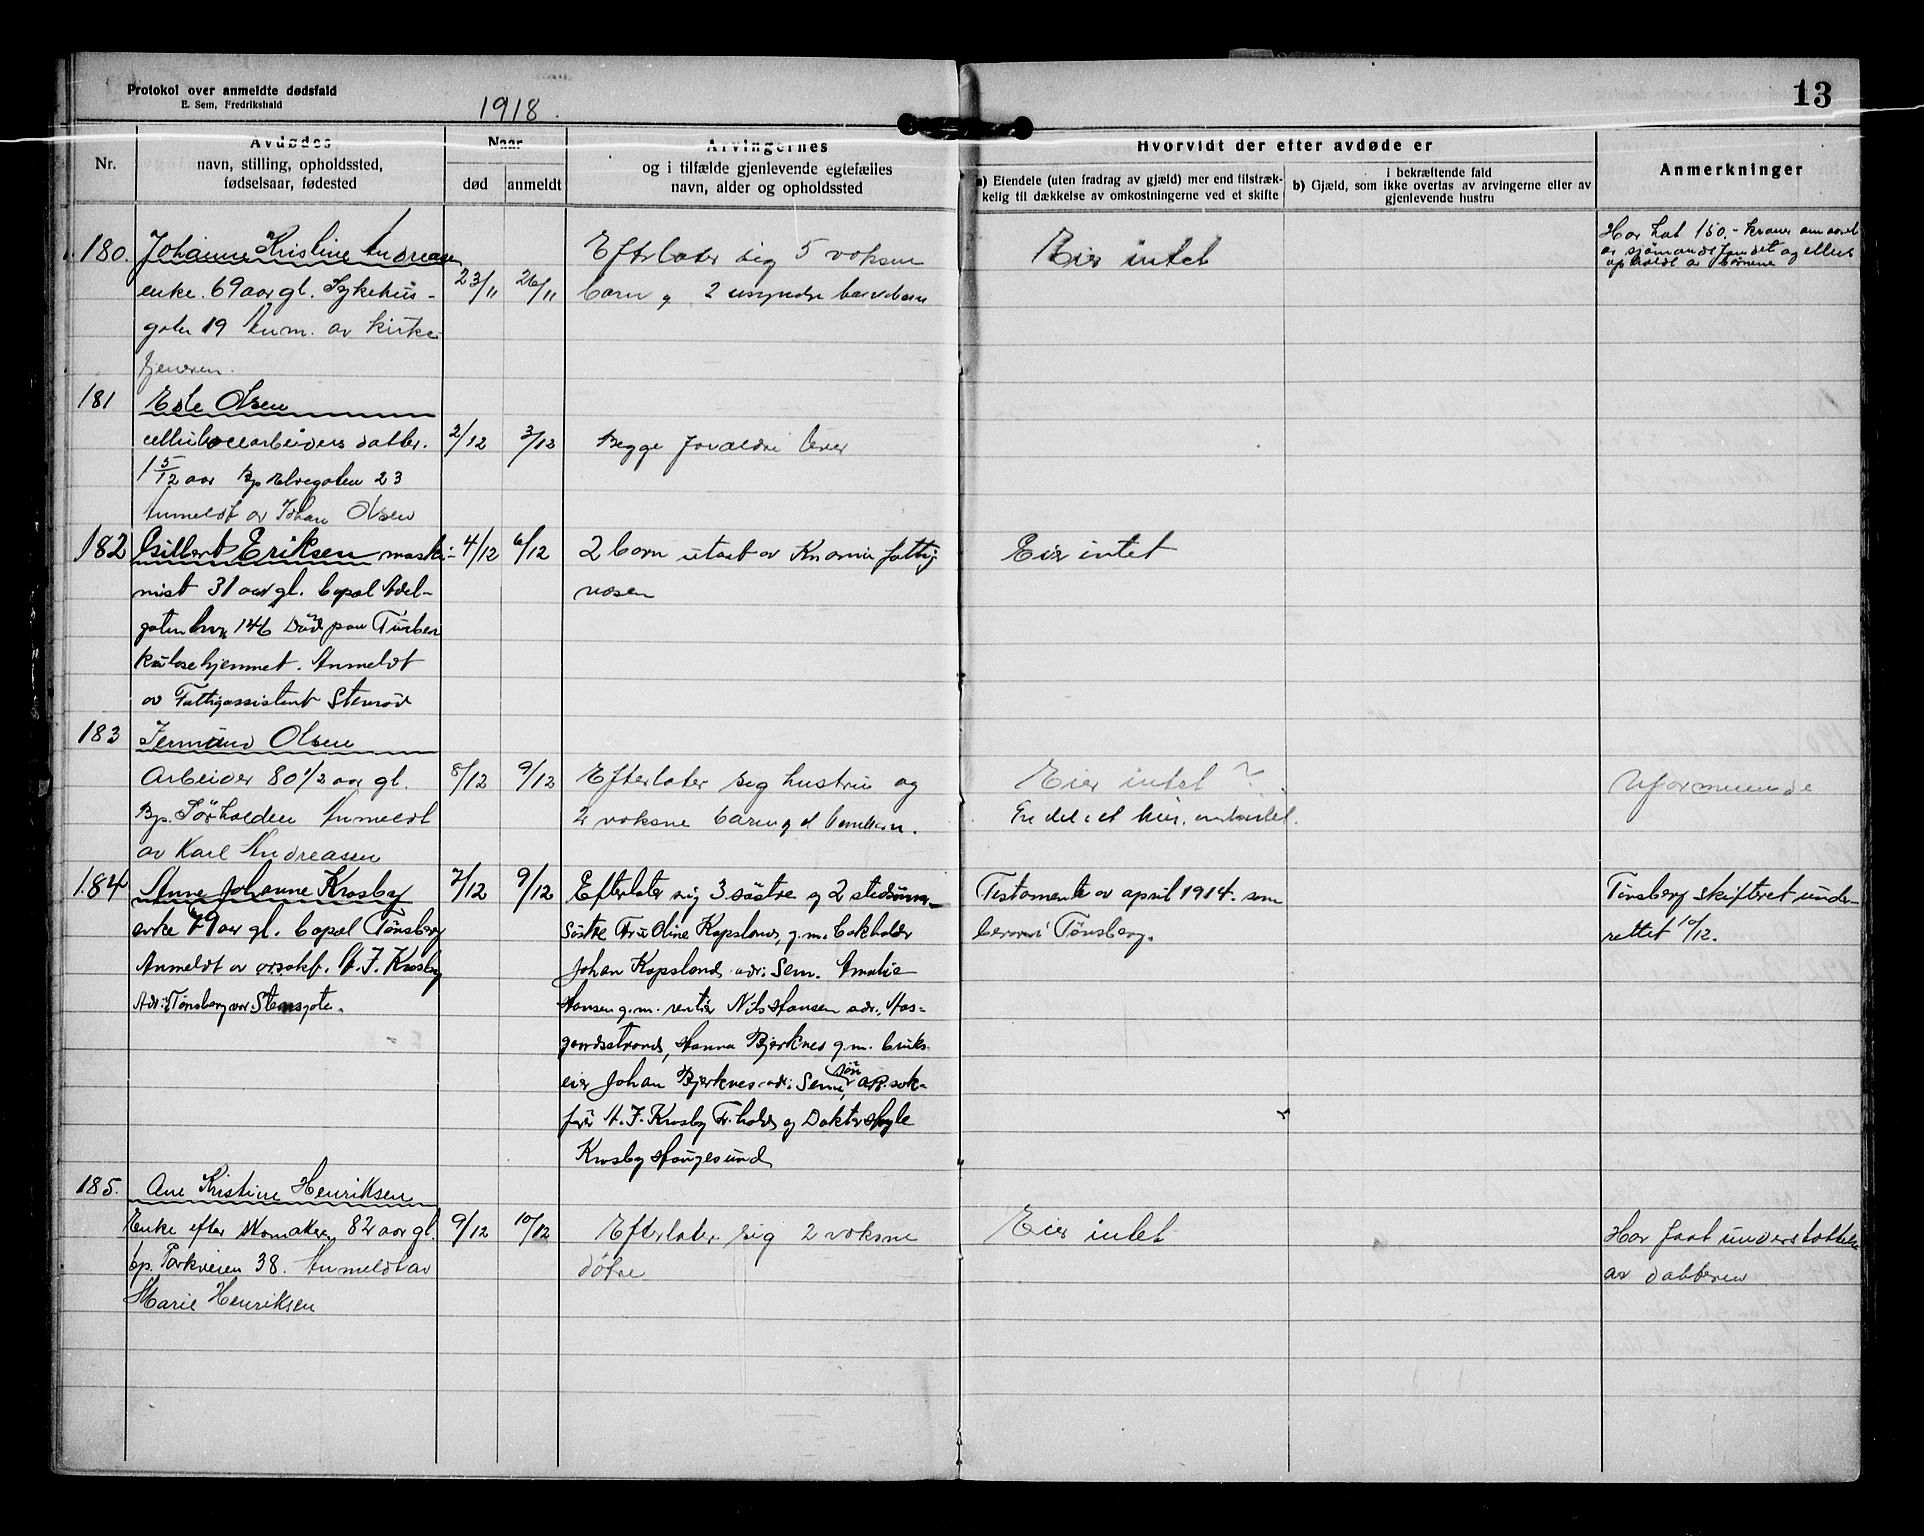 Protokol over anmeldte dødsfald
E. Sem, Fredrikshald
1918.
13
Nr.
Avdødes
navn, stilling, opholdssted,
fødselsaar, fødested
Naar
død
anmeldt
Arvingernes
og i tilfælde gjenlevende egtefælles
navn, alder og opholdssted
Hvorvidt der efter avdøde er
a) Eiendele (uten fradrag av gjæld) mer end tilstræk-
kelig til dækkelse av omkostningerne ved et skifte
i bekræftende fald
b) Gjæld, som ikke overtas av arvingerne eller av
gjenlevende hustru
Anmerkninger
180. Johanne Kristine Andreasen
enke. 69 aar gl. Sykehus-
gaten 19 Anm. av kirke
tjeneren.
23/11 26/11
Efterlater sig 5 voksne
barn og 2 umyndre barnebarn
Eier intet
Har hat 150.- kroner om aaret
av sjömandsfondet og ellers
opholdt av børnene
181 Else Olsen
cellulosearbeiders datter.
1 5/12 aar Bp Elvegaten 23
Anmeldt av Johan Olsen
2/12 3/12
Begge foraeldre lever
182 Gilbert Eriksen maski-
nist 31 aar gl. bopæl Adel-
gaten 146 Död paa Tuber
kulosehjemmet. Anmeldt
av Fattigassistent Stenröd
4/12 6/12
2 barn utsat av fattig
væsen
Eier intet
183 Jermund Olsen
Arbeider 80 1/2 aar gl.
Bp. Sørhalden Anmeldt
av Karl Andreasen
8/12 9/12
Efterlater sig hustru og
2 voksne barn og barnebarn.
Eier intet ?
En del i et hus.
Uformuende
184 Anne Johanne Krosby
enke 79 aar gl. bopæl Tønsberg
Anmeldt av orsakf. A. F. Krosby
Adr: Tønsberg Stensgate.
7/12 9/12
Efterlater sig 3 söstre og 2 stedsönner
Söstre Fru Oline Kapsland, g.m. bokholder
Johan Kapsland adr: Sem. Amalie
Hansen g.m. rentier Nils Hansen adr. Aas-
gaardsstrand, Hanna Bjerknes g.m. bruks-
eier Johan Bjerknes adr: Sem, sön o.r. sak-
förer A. F. Krosby Fr.hald og Dokter Hagle
Krosby Haugesund
Testamente av april 1914 som
beror i Tønsberg.
Tönsberg skifteret under-
rettet 10/12.
185. Ane Kristine Henriksen
Enke efter skomaker, 82 aar gl.
bp. Parkveien 38. Anmeldt av
Marie Henriksen
9/12 10/12
Efterlater sig 2 voksne
døtre
Eier intet
Har faat understøttelse
av datteren